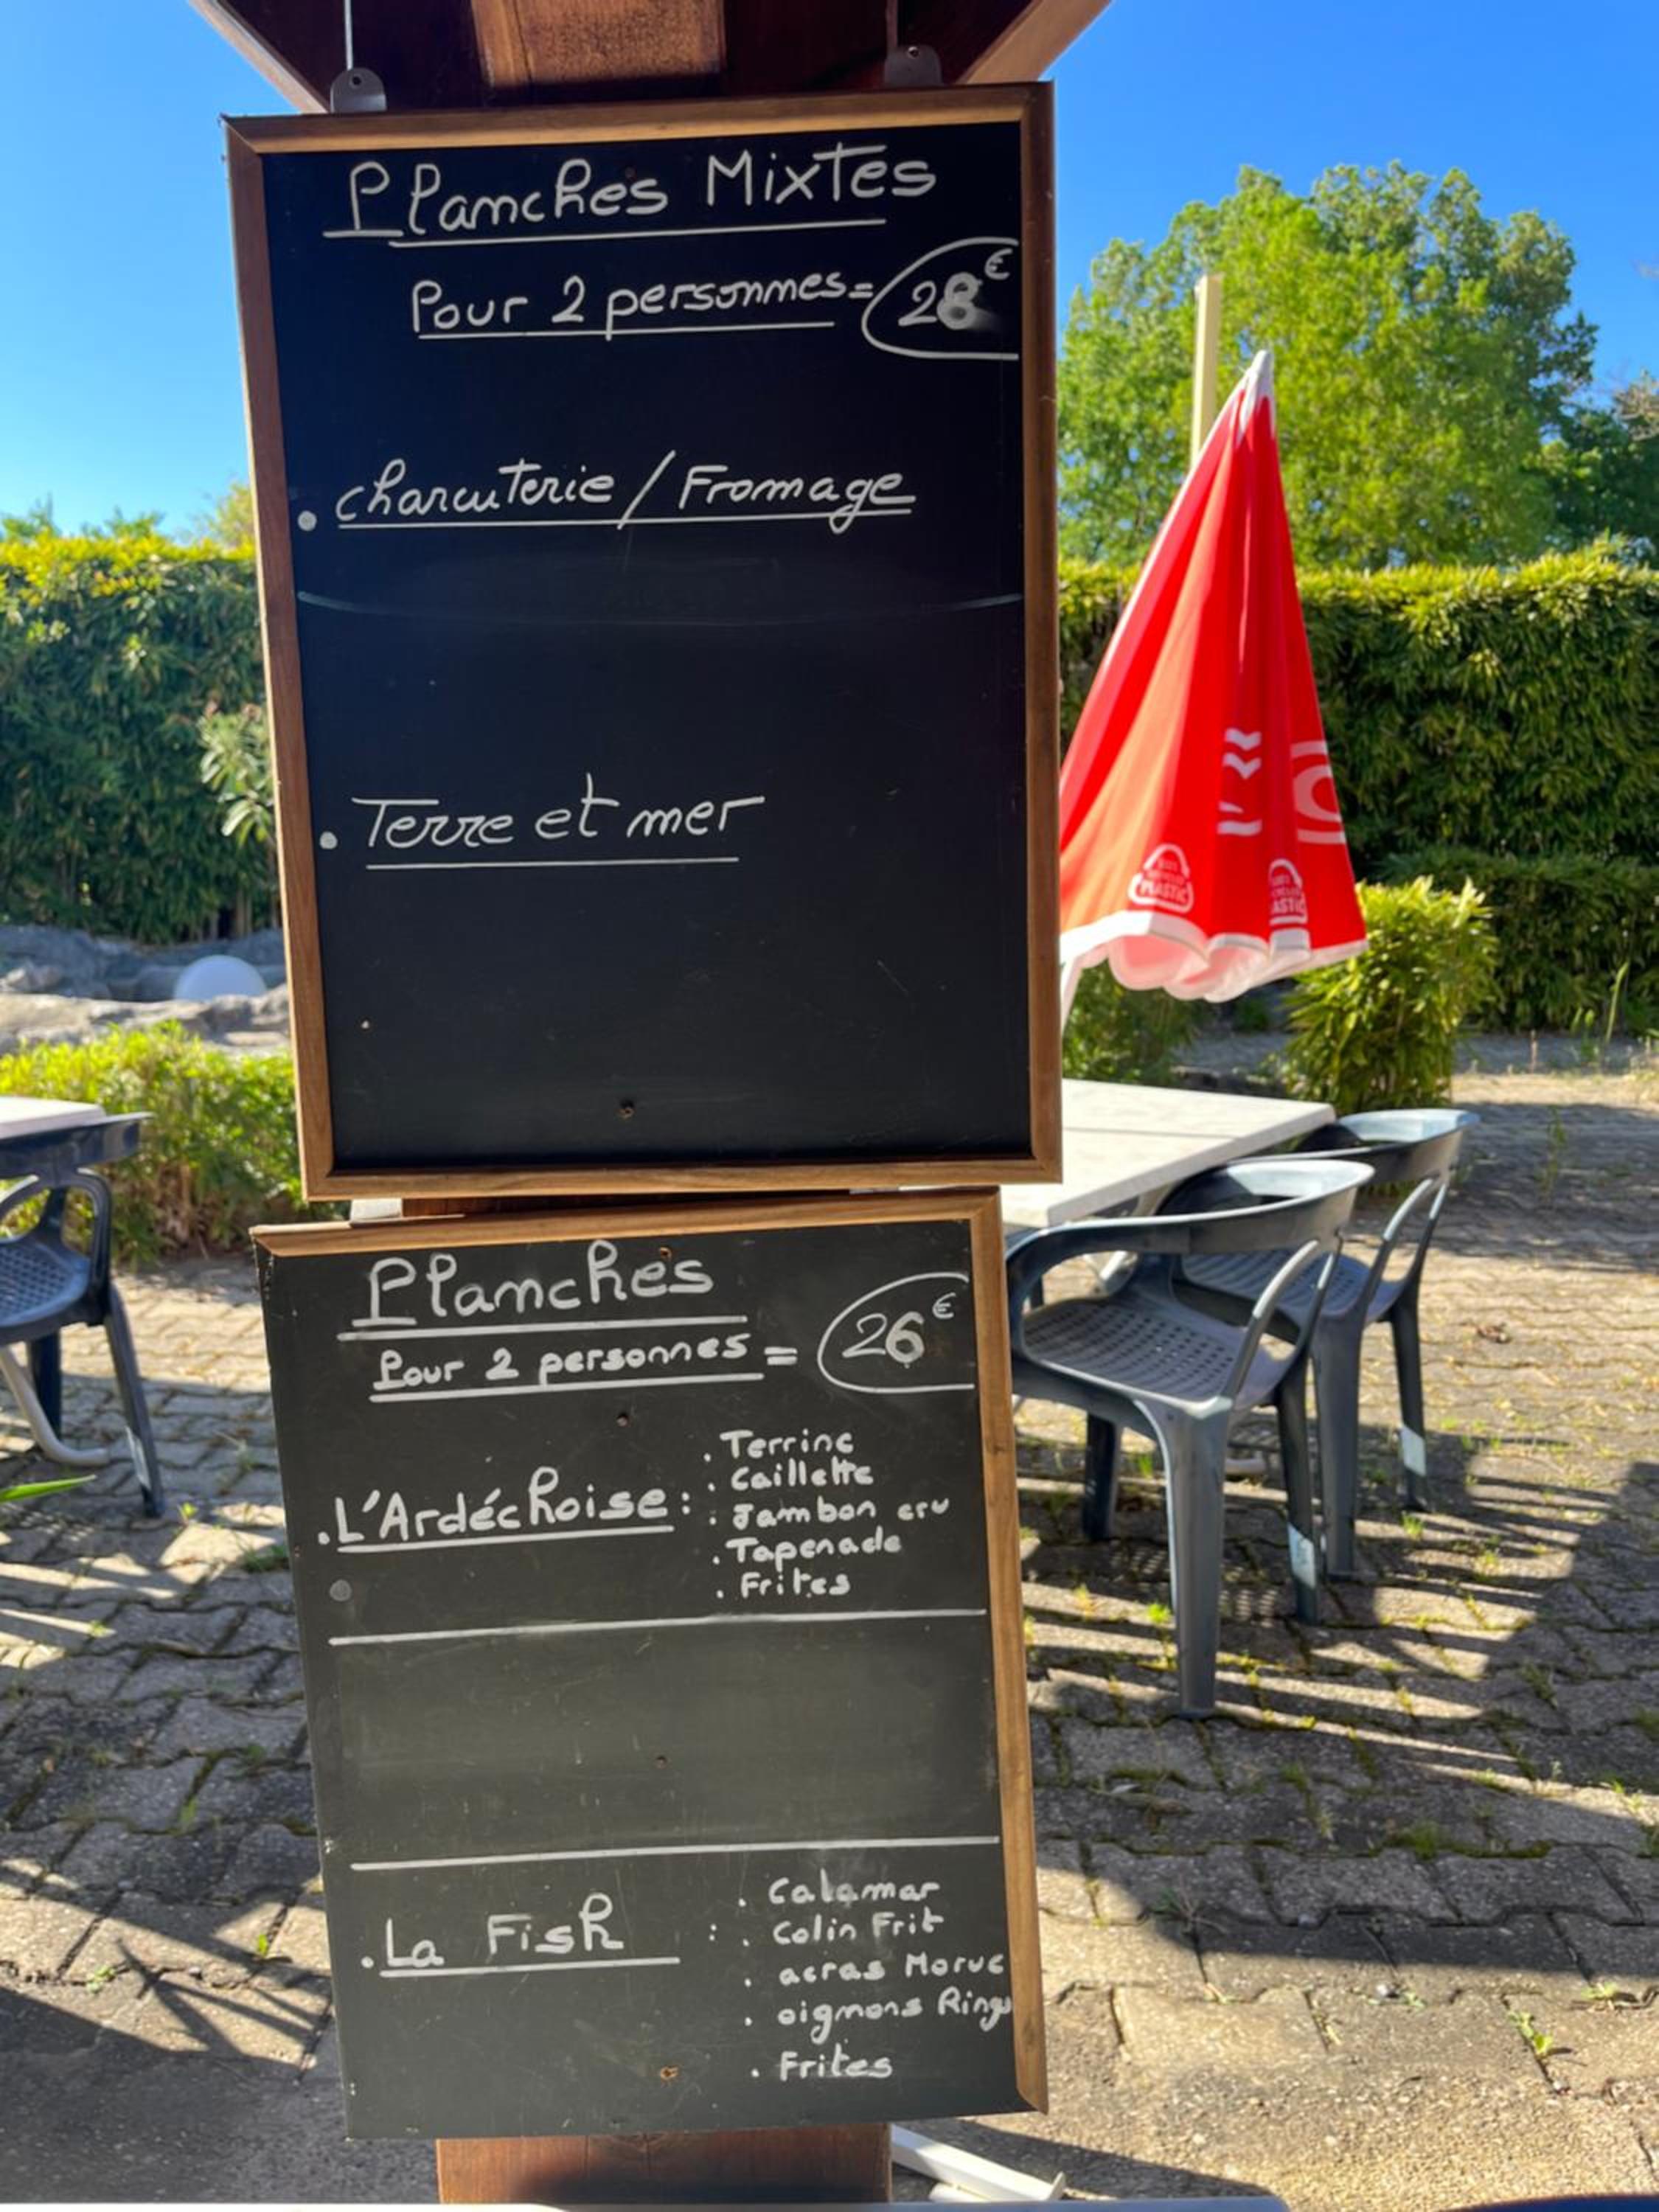 Planches Mixtes
Pour 2 personnes = 28€
. charcuterie / Fromage
. Terre et mer
Planches
Pour 2 personnes = 26€
. L'Ardéchoise :
. Terrine
. Caillette
. Jambon cru
. Tapenade
. Frites
. La Fish :
. Calamar
. Colin Frit
. acras Morue
. oignons Rings
. Frites
PLASTIC